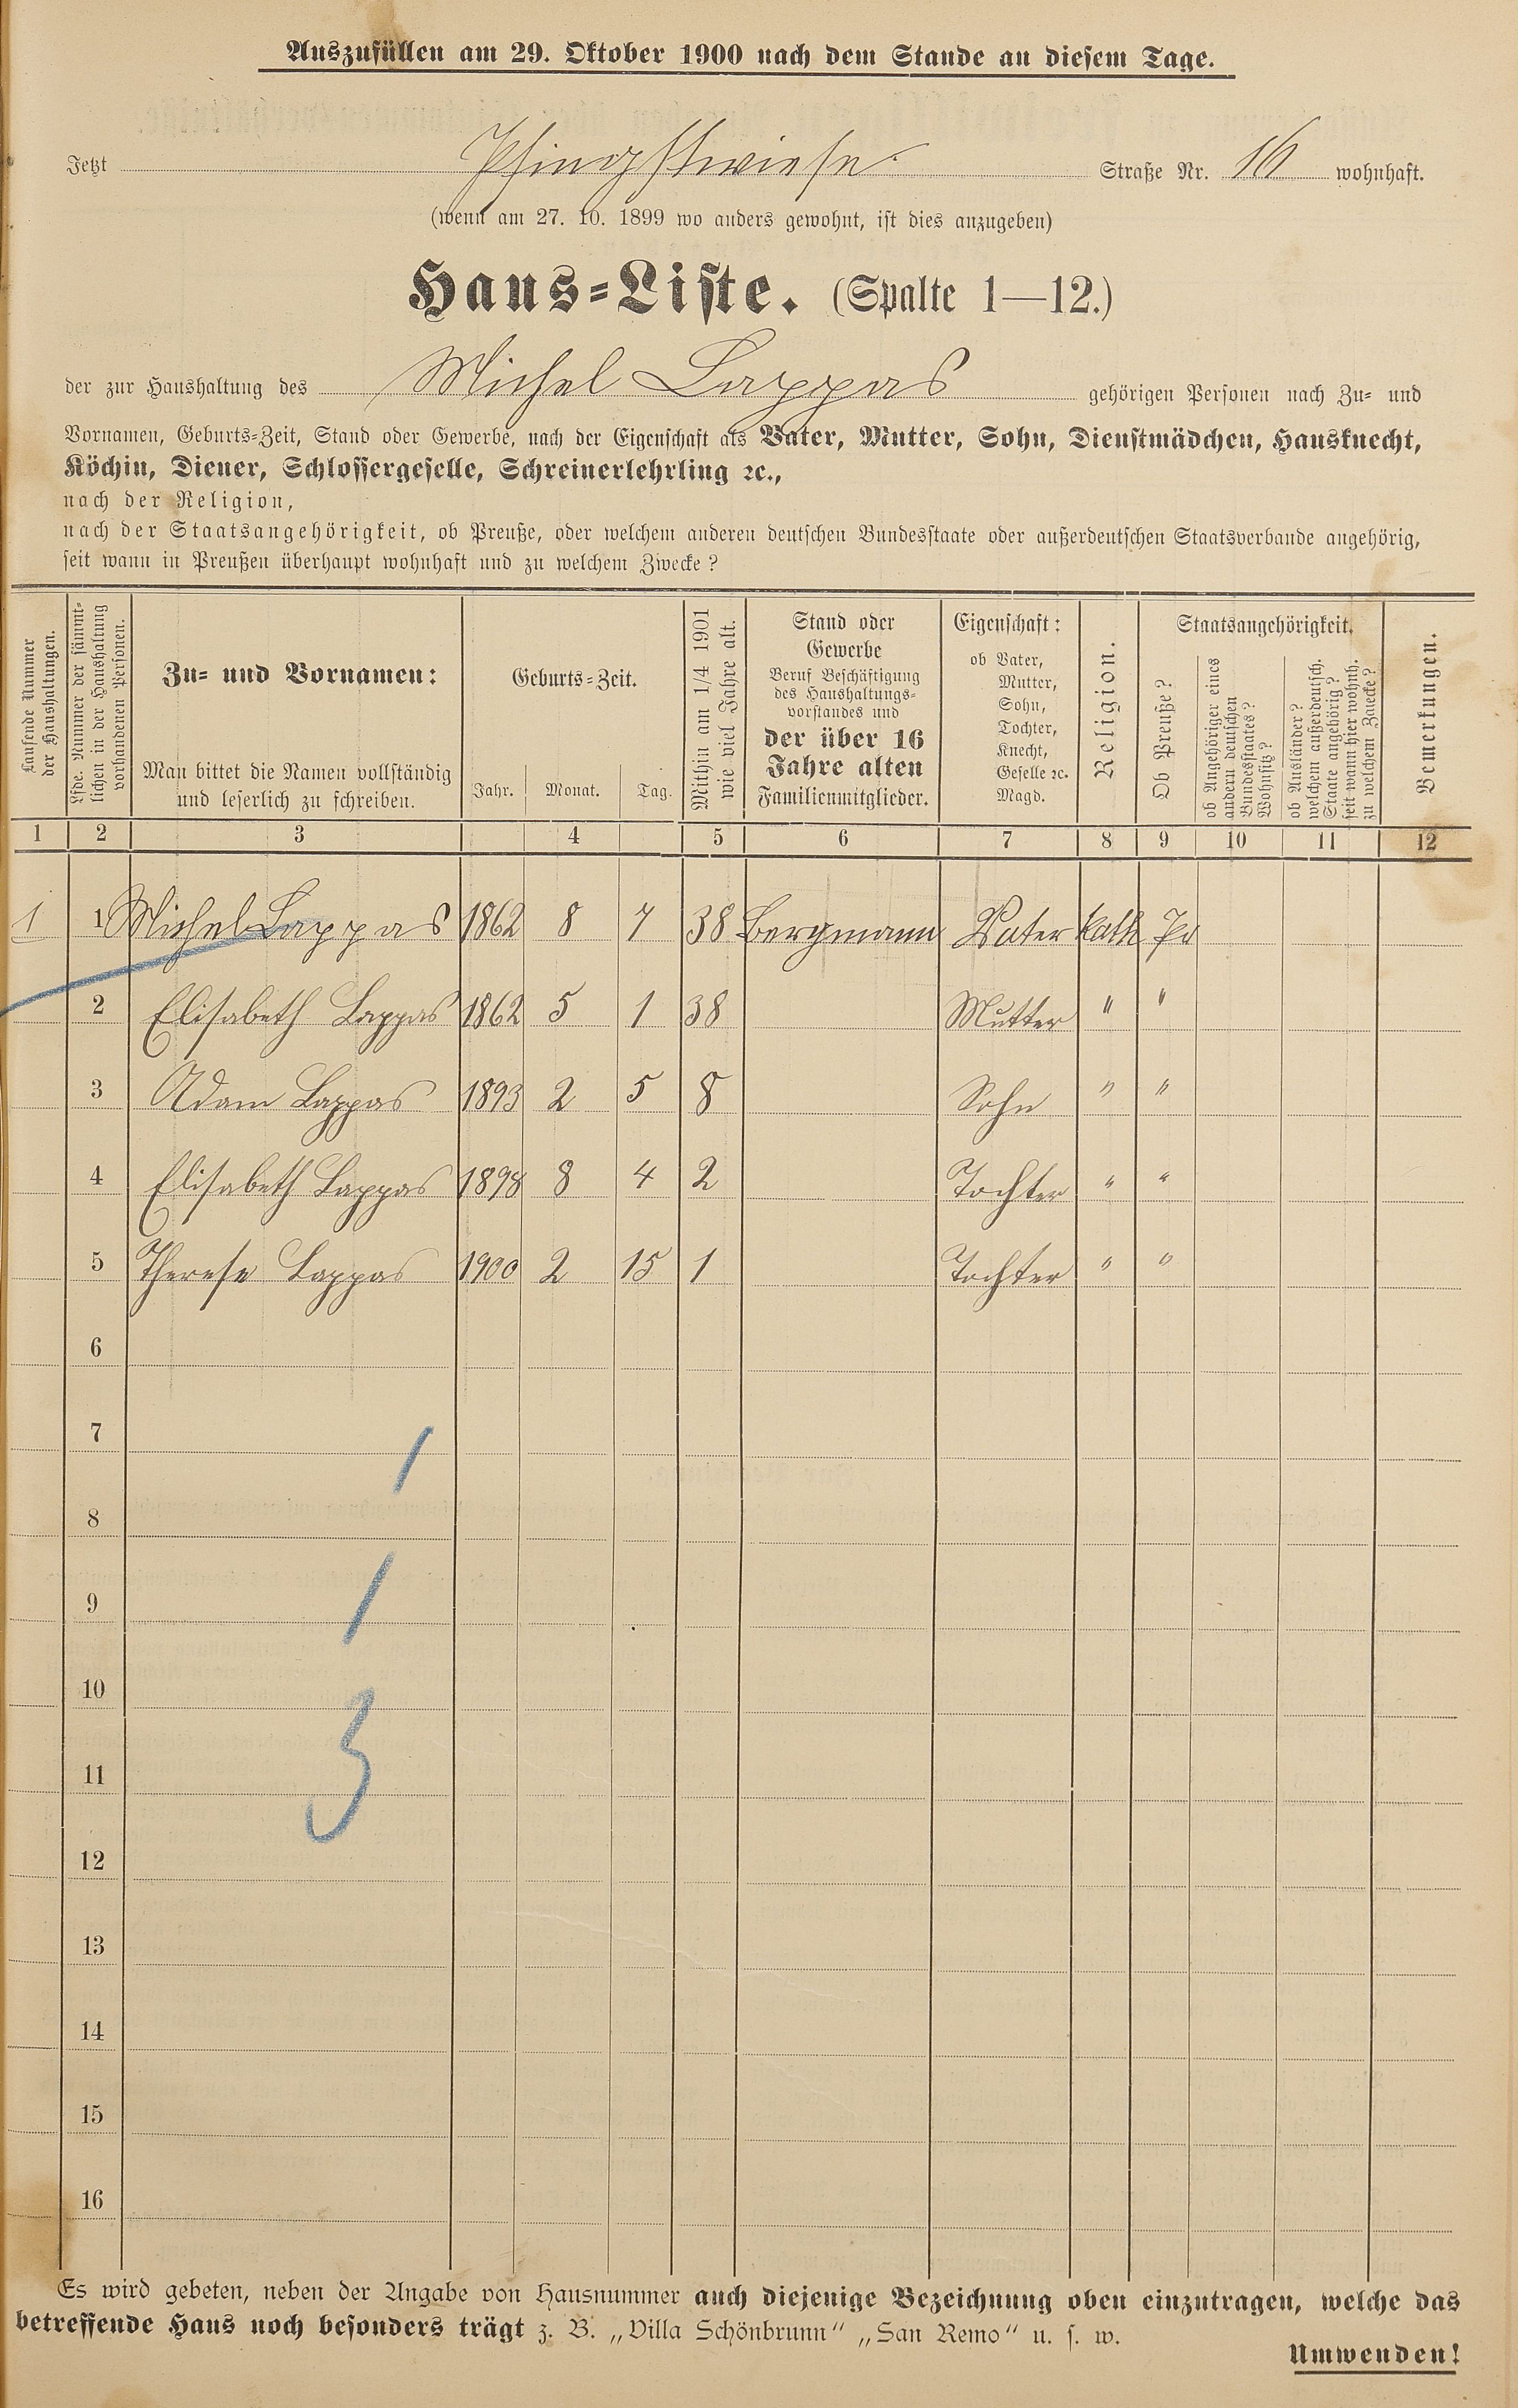 Auszufüllen am 29. Oktober 1900 nach dem Stande an diesem Tage.
Jetzt Pfingstwiese Straße Nr. 16 wohnhaft.
(wenn am 27. 10. 1899 wo anders gewohnt, ist dies anzugeben)
Haus-Liste. (Spalte 1—12.)
der zur Haushaltung des Michel Lappas gehörigen Personen nach Zu- und
Vornamen, Geburts-Zeit, Stand oder Gewerbe, nach der Eigenschaft als Vater, Mutter, Sohn, Dienstmädchen, Hausknecht,
Köchin, Diener, Schlossergeselle, Schreinerlehrling ꝛc.,
nach der Religion,
nach der Staatsangehörigkeit, ob Preuße, oder welchem anderen deutschen Bundesstaate oder außerdeutschen Staatsverbande angehörig,
seit wann in Preußen überhaupt wohnhaft und zu welchem Zwecke?
Laufende Nummer
der Haushaltungen.
Lfde. Nummer der sämmt-
lichen in der Haushaltung
vorhandenen Personen.
Zu- und Vornamen:
Man bittet die Namen vollständig
und leserlich zu schreiben.
Geburts-Zeit.
Jahr. Monat. Tag.
Mithin am 1/4 1901
wie viel Jahre alt.
Stand oder
Gewerbe
Beruf Beschäftigung
des Haushaltungs-
vorstandes und
der über 16
Jahre alten
Familienmitglieder.
Eigenschaft:
ob Vater,
Mutter,
Sohn,
Tochter,
Knecht,
Geselle ꝛc.
Magd.
Religion.
Staatsangehörigkeit.
Ob Preuße?
ob Angehöriger eines
andern deutschen
Bundesstaates?
Wohnsitz?
ob Ausländer?
welchem außerdeutsch.
Staate angehörig?
seit wann hier wohnh.
zu welchem Zwecke?
Bemerkungen.
1 2 3 4 5 6 7 8 9 10 11 12
1 1 Michel Lappas 1862 8 7 38 Bergmann Vater Kath Pr
2 Elisabeth Lappas 1862 5 1 38 Mutter " "
3 Adam Lappas 1893 2 5 8 Sohn " "
4 Elisabeth Lappas 1898 8 4 2 Tochter " "
5 Therese Lappas 1900 2 15 1 Tochter " "
6
7
1
8
9
1
10
11
3
12
13
14
15
16
Es wird gebeten, neben der Angabe von Hausnummer auch diejenige Bezeichnung oben einzutragen, welche das
betreffende Haus noch besonders trägt z. B. „Villa Schönbrunn“ „San Remo“ u. s. w.
Umwenden!